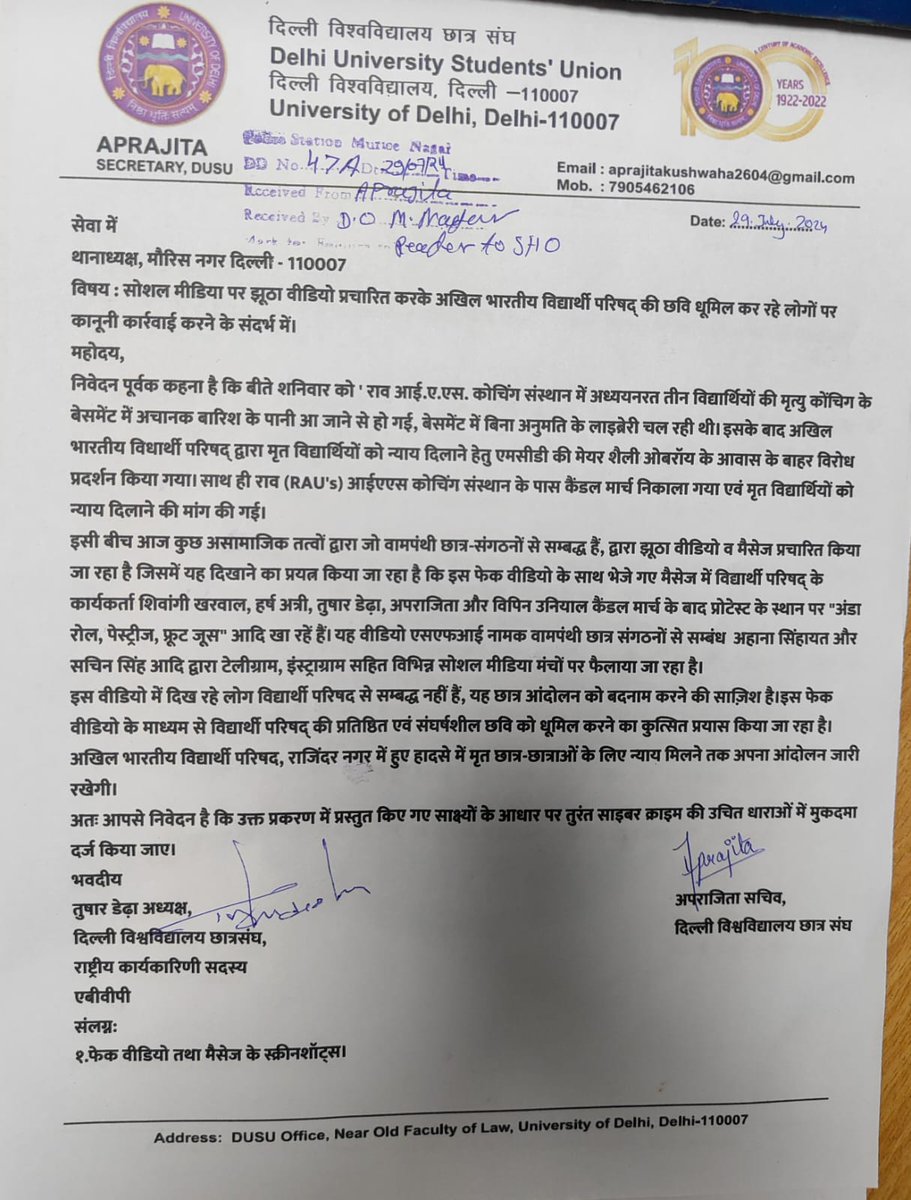 दिल्ली विश्वविद्यालय छात्र संघ
Delhi University Students' Union
दिल्ली विश्वविद्यालय, दिल्ली –110007
University of Delhi, Delhi-110007
UNIVERSITY OF DELHI
निष्ठा धृति सत्यम्
A CENTURY OF ACADEMIC EXCELLENCE
100
YEARS
1922-2022
APRAJITA
SECRETARY, DUSU
Station Murice Nagar
DD No. 47A Dt 29/07/24 Time
Received From Aprajita
Received By D.O M. Nager
Reader to SHO
Email : aprajitakushwaha2604@gmail.com
Mob. : 7905462106
Date: 29. July. 2024
सेवा में
थानाध्यक्ष, मौरिस नगर दिल्ली - 110007
विषय : सोशल मीडिया पर झूठा वीडियो प्रचारित करके अखिल भारतीय विद्यार्थी परिषद् की छवि धूमिल कर रहे लोगों पर
कानूनी कार्रवाई करने के संदर्भ में।
महोदय,
निवेदन पूर्वक कहना है कि बीते शनिवार को ' राव आई.ए.एस. कोचिंग संस्थान में अध्ययनरत तीन विद्यार्थियों की मृत्यु कोंचिग के
बेसमेंट में अचानक बारिश के पानी आ जाने से हो गई, बेसमेंट में बिना अनुमति के लाइब्रेरी चल रही थी। इसके बाद अखिल
भारतीय विधार्थी परिषद् द्वारा मृत विद्यार्थियों को न्याय दिलाने हेतु एमसीडी की मेयर शैली ओबरॉय के आवास के बाहर विरोध
प्रदर्शन किया गया। साथ ही राव (RAU's) आईएएस कोचिंग संस्थान के पास कैंडल मार्च निकाला गया एवं मृत विद्यार्थियों को
न्याय दिलाने की मांग की गई।
इसी बीच आज कुछ असामाजिक तत्वों द्वारा जो वामपंथी छात्र-संगठनों से सम्बद्ध हैं, द्वारा झूठा वीडियो व मैसेज प्रचारित किया
जा रहा है जिसमें यह दिखाने का प्रयत्न किया जा रहा है कि इस फेक वीडियो के साथ भेजे गए मैसेज में विद्यार्थी परिषद् के
कार्यकर्ता शिवांगी खरवाल, हर्ष अत्री, तुषार डेढ़ा, अपराजिता और विपिन उनियाल कैंडल मार्च के बाद प्रोटेस्ट के स्थान पर "अंडा
रोल, पेस्ट्रीज, फ्रूट जूस" आदि खा रहें हैं। यह वीडियो एसएफआई नामक वामपंथी छात्र संगठनों से सम्बंध अहाना सिंहायत और
सचिन सिंह आदि द्वारा टेलीग्राम, इंस्ट्राग्राम सहित विभिन्न सोशल मीडिया मंचों पर फैलाया जा रहा है।
इस वीडियो में दिख रहे लोग विद्यार्थी परिषद से सम्बद्ध नहीं हैं, यह छात्र आंदोलन को बदनाम करने की साज़िश है।इस फेक
वीडियो के माध्यम से विद्यार्थी परिषद् की प्रतिष्ठित एवं संघर्षशील छवि को धूमिल करने का कुत्सित प्रयास किया जा रहा है।
अखिल भारतीय विद्यार्थी परिषद, राजिंदर नगर में हुए हादसे में मृत छात्र-छात्राओं के लिए न्याय मिलने तक अपना आंदोलन जारी
रखेगी।
अतः आपसे निवेदन है कि उक्त प्रकरण में प्रस्तुत किए गए साक्ष्यों के आधार पर तुरंत साइबर क्राइम की उचित धाराओं में मुकदमा
दर्ज किया जाए।
भवदीय
तुषार डेढ़ा अध्यक्ष,
दिल्ली विश्वविद्यालय छात्रसंघ,
राष्ट्रीय कार्यकारिणी सदस्य
एबीवीपी
Aprajita
अपराजिता सचिव,
दिल्ली विश्वविद्यालय छात्र संघ
संलग्नः
१.फेक वीडियो तथा मैसेज के स्क्रीनशॉट्स।
Address: DUSU Office, Near Old Faculty of Law, University of Delhi, Delhi-110007